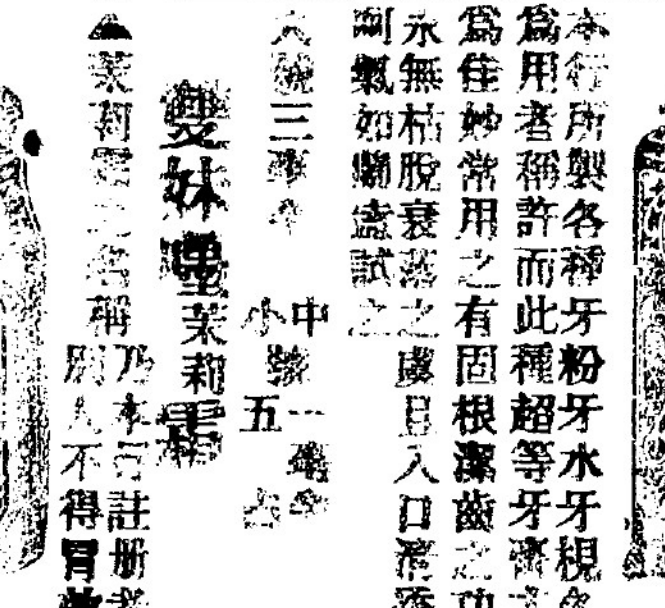 本行所製各種牙粉牙水牙梘各
為用者稱許而此種超等牙膏
為佳妙常用之有固根潔齒之功
永無枯脫衰落之虞且入口清香
氣如蘭盍試之
大號三毫半
中號一毫
小號五占
雙妹嚜茉莉霜
▲茉莉霜之名稱
乃本行註册者
別人不得冒